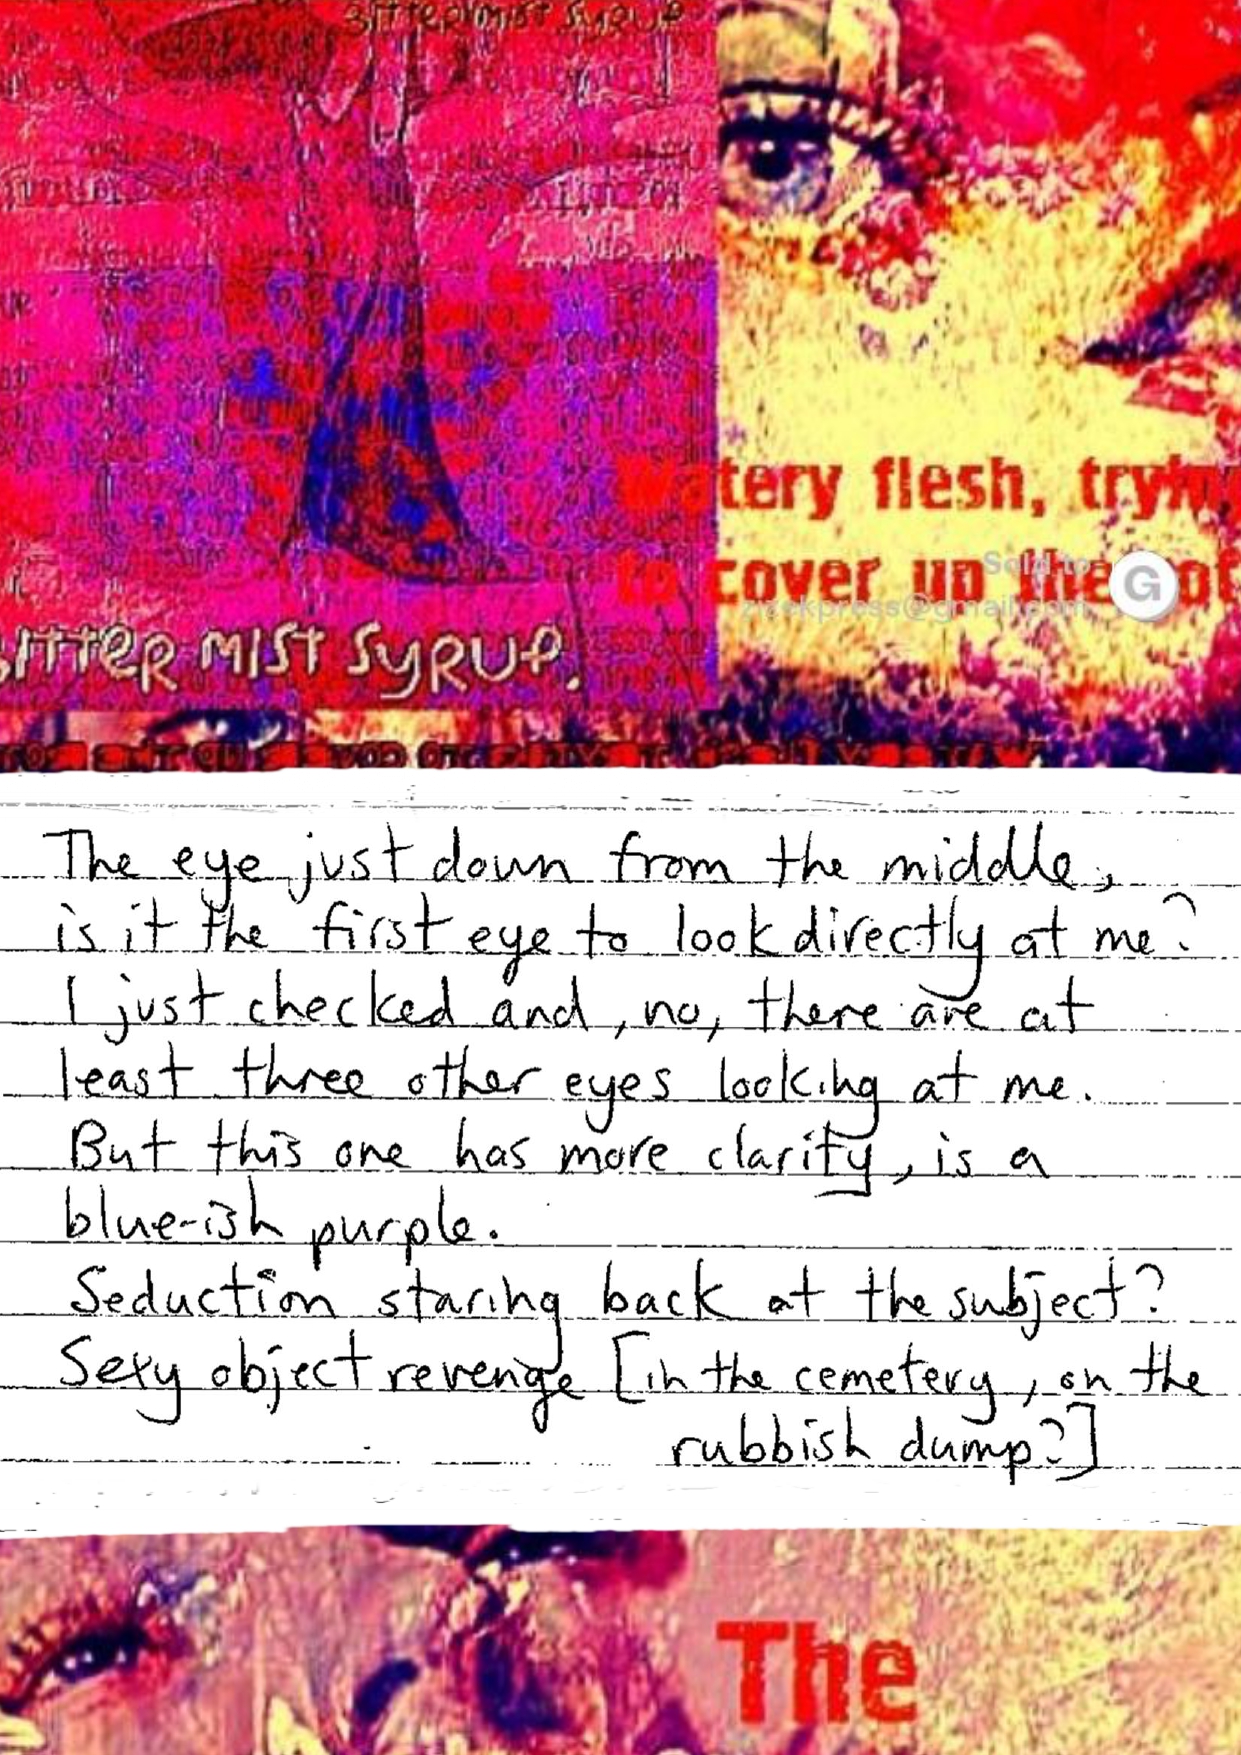 BITTER MIST SYRUP
Watery flesh, tryin
to cover up the rot
Sold to
zizekpress@gmail.com
G
BITTER MIST SYRUP.
The eye just down from the middle,
is it the first eye to look directly at me?
I just checked and, no, there are at
least three other eyes looking at me.
But this one has more clarity, is a
blue-ish purple.
Seduction staring back at the subject?
Sexy object revenge [in the cemetery, on the
rubbish dump?]
The